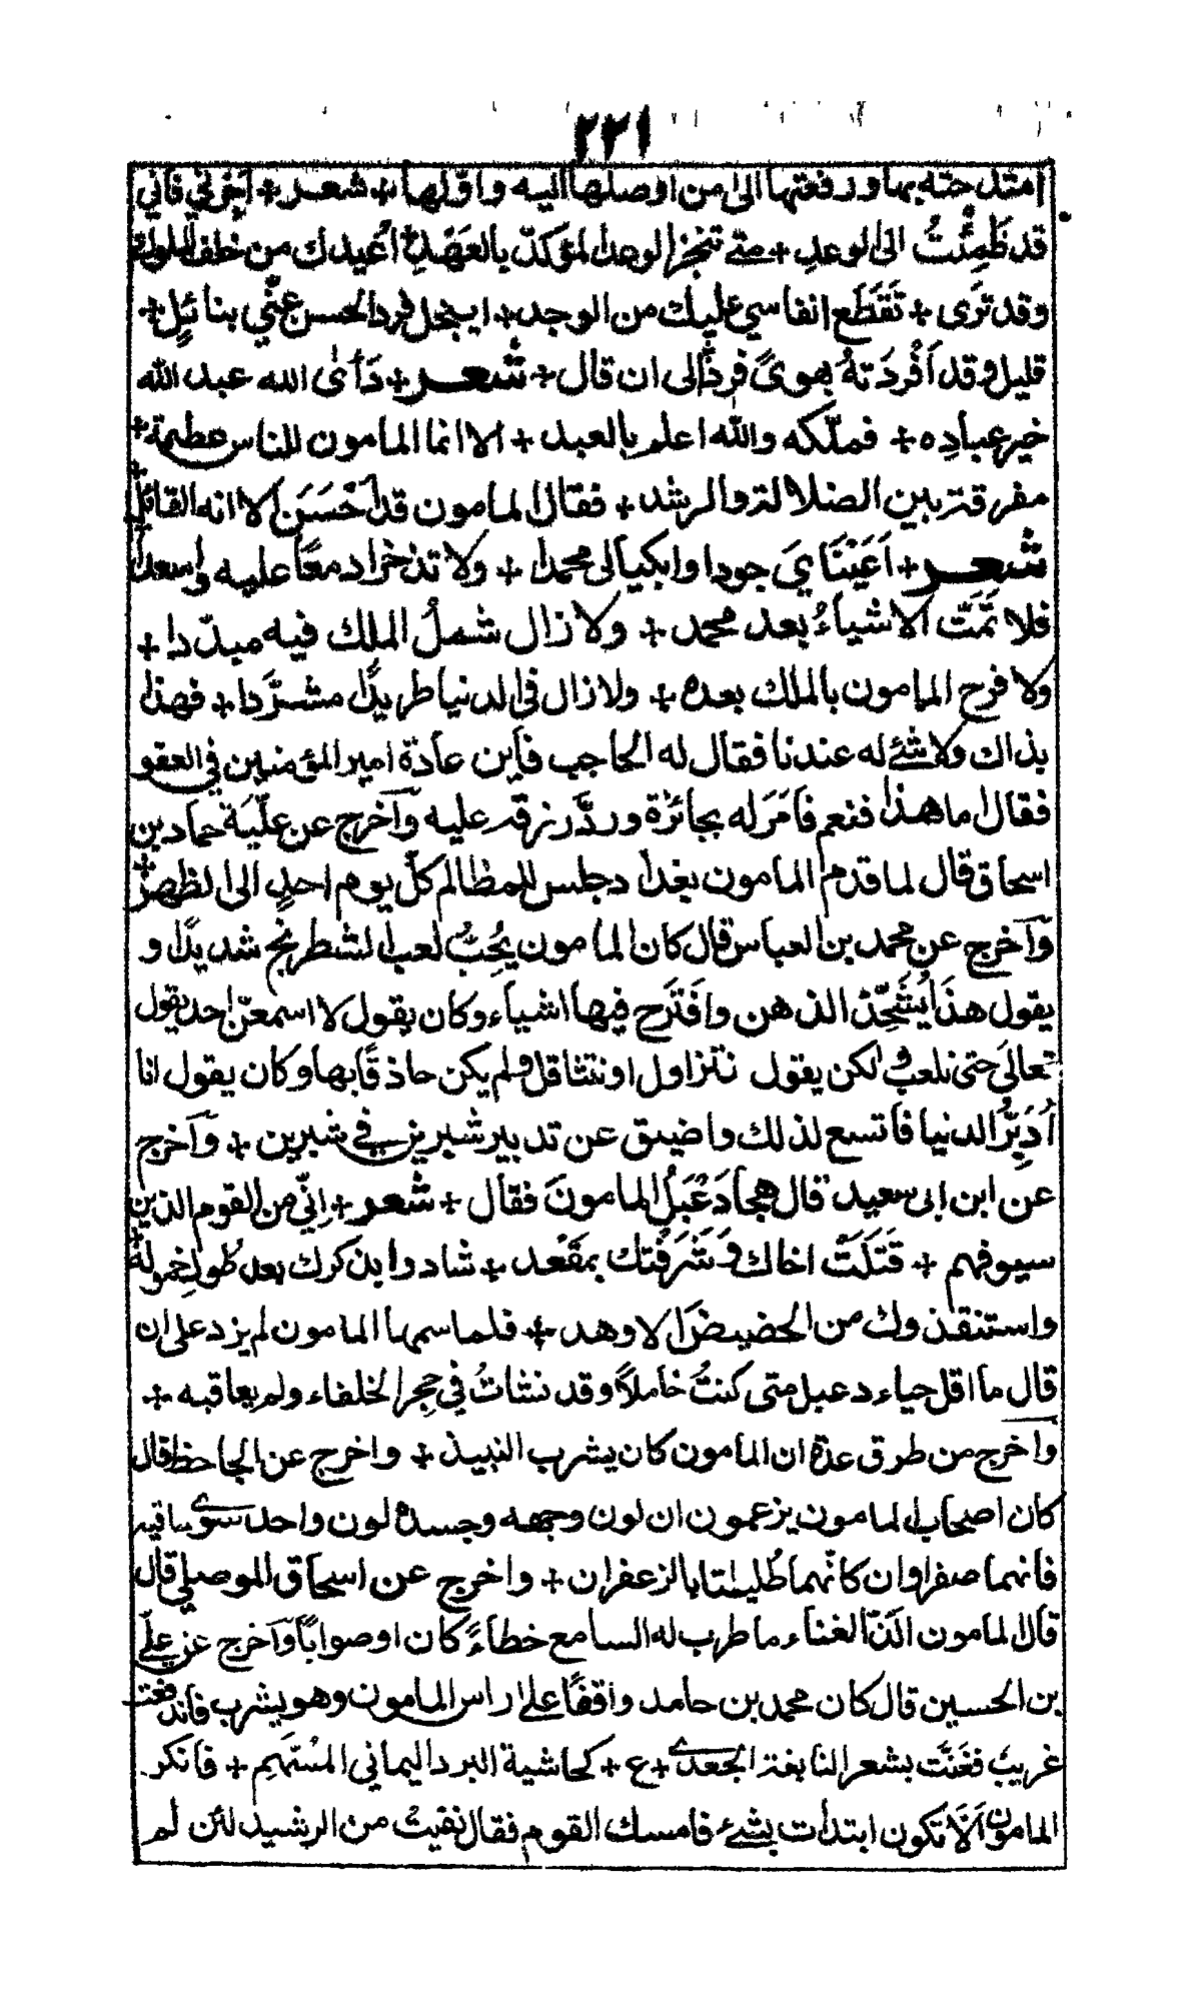 ٢٢١
امتدحته بها ورفعتها الى من اوصلها اليه واوّلها + شعر + اجرني فاني
قد ظَمِئْتُ الى الوعدِ + متے تنجز الوعد المؤكدّ بالعَهْدِ + اُعيدك من خلف الملوك
وقد ترَى + تَقَطَّع انفاسي عليك من الوجد + ايبخل فرد الحسن عنّي بنائلٍ +
قليل وقد اَفْرَدتهُ بهوىً فرد الى ان قال + شعر + رَأىٰ الله عبد الله
خير عبادِه + فملّكه والله اعلم بالعبد + الا انما المامون للناس عصمة +
مفرقة بين الضلالة والرشد + فقال المامون قد اَحْسَنَ الا انه القائل +
شعر + اَعَيْنَايَ جودا وابكيا لى محمدا + ولا تذخرا دمعًا عليه واسعدا
فلا تمّتّ الاشياءُ بعد محمد + ولا زال شملُ الملك فيه مبدّدا +
ولا فرح المامون بالملك بعده + ولا زال فى الدنيا طريدًا مشرّدا + فهذا
بذاك ولا شئے له عندنا فقال له الحاجب فاَين عادة امير المؤمنين في العفو
فقال اما هذا فنعم فاَمَر له بجائزة وردَّ رزقه عليه وآخرج عن علّيّة حماد بن
اسحاق قال لما قدم المامون بغداد جلس للمظالم كلّ يوم احدٍ الى الظهر +
وآخرج عن محمد بن العباس قال كان المامون يُحِبُّ لعب الشطرنج شديدًا و
يقول هذا يُشَحِّذُ الذهن واقْتَرَح فيها اشياء وكان يقول لا اسمعنّ احد يقول
تعالىَ حتى نلعب ولكن يقول نتزاول او نتثاقل ولم يكن حاذقًا بها وكان يقول انا
اُدَبِّرُ الدنيا فاَتسع لذلك واضيق عن تدبير شبريز في شبرين + وآخرج
عن ابن ابى سعيد قال هجا دَعْبَلُ المامونَ فقال + شعر + اِنّي من القوم الذين
سيوفهم + قَتَلَتْ اخاك وشَرَفَّتك بمقْعد + شادوا بذكرك بعد طول خمولهٖ +
واستنقذوك من الحضيض الاوهد + فلما سمها المامون لم يزد على ان
قال ما اقل حياء دعبل متى كنتُ خاملاً وقد نشاتُ في حِجر الخلفاء ولم يعاقبه +
وآخرج من طرق عدة ان المامون كان يشرب النبيذ + واخرج عن الجاحظ قال
كان اصحاب المامون يزعمون ان لون وجهه وجسده لون واحد سوے ساقيه
فانهما صفراوان كانّهما طُليتا بالزعفران + واخرج عن اسحاق الموصلي قال
قال المامون الَذّ الغناء ما طرب له السامع خطاءً كان او صوابًا وآخرج عن علي
بن الحسين قال كان محمد بن حامد واقفًا علے راس المامون وهو يشرب فاندفعت
غريبُ فغَنَّت بشعر النابغة الجعدے + ع + كحاشية البرد اليماني المُسَهَّمِ + فانكر
المامون اَلَّا تكون ابتدأت بشئ فامسك القوم فقال نفيت من الرشيد لئن لم